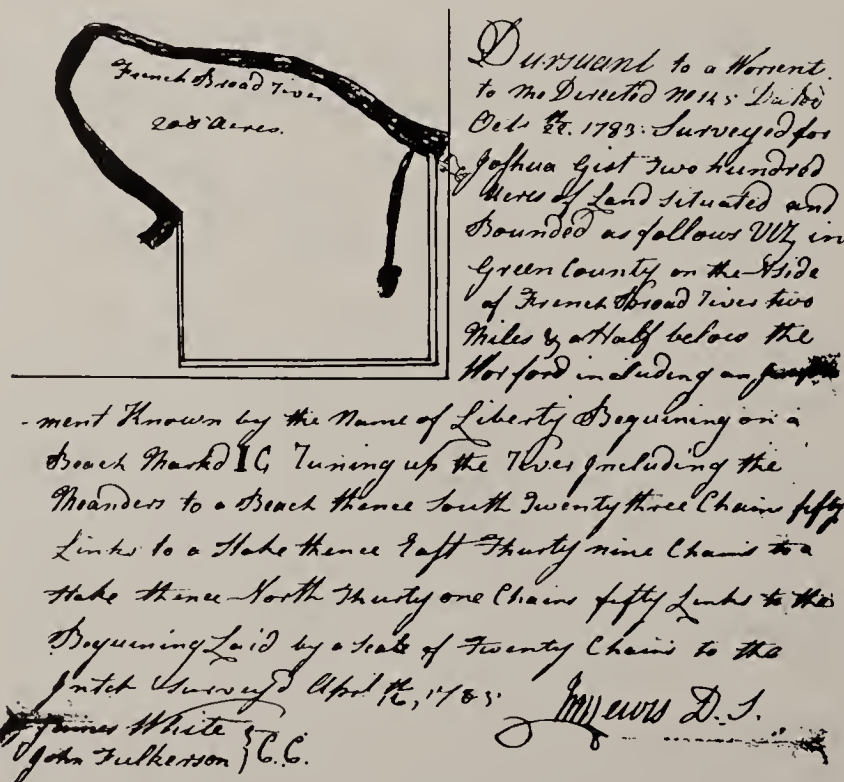 French Broad River
208 Acres.
Pursuant to a Worrent
to me Directed No 145 Dated
Octb 22. 1783. Surveyed for
Joshua Gist Two hundred
Acres of Land situated and
Bounded as follows VIZ, in
Green County on the side
of French Broad River two
Miles & a Half below the
War ford including an
-ment Known by the Name of Liberty Beguining on a
Beach Markd I G Runing up the River Including the
Meanders to a Beach thence South Twenty three Chains fifty
Links to a Stake thence East Thurty nine Chains to a
Stake thence North Thurty one Chains fifty Links to the
Beguining Laid by a Scale of Twenty Chains to the
Intch Survey'd April 16th, 1785
D. S.
James White
John Fulkerson } C. C.